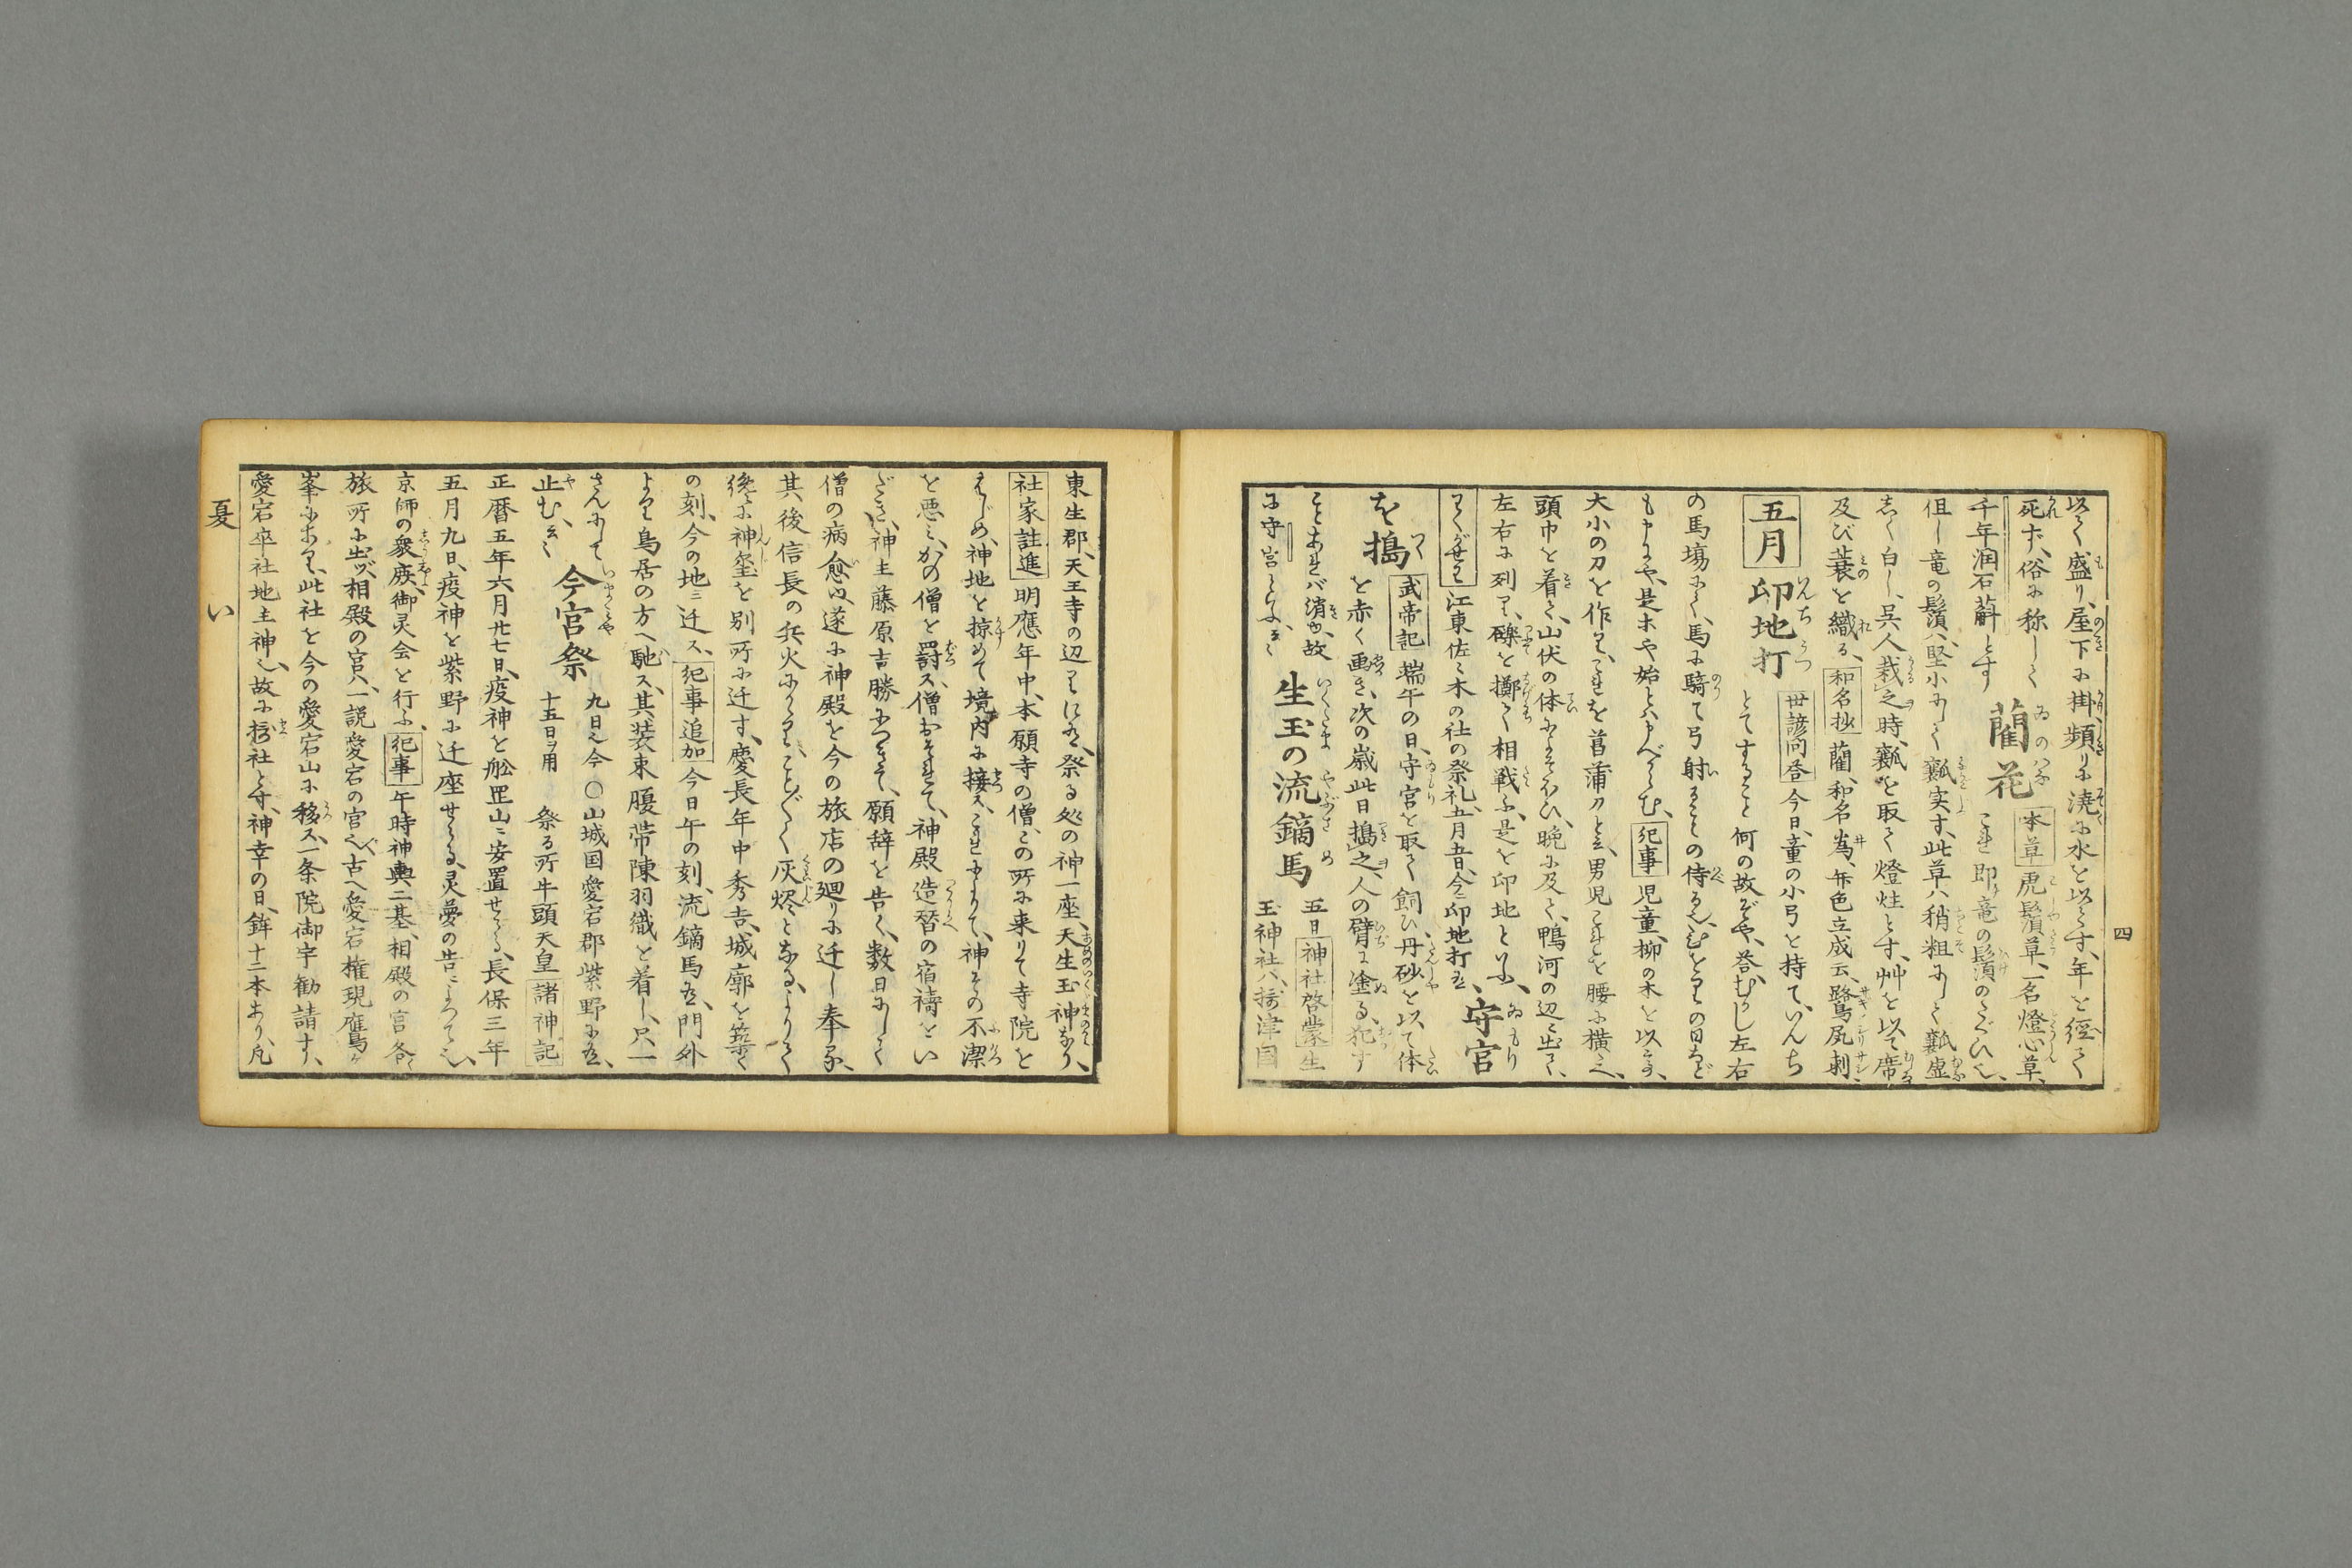 以て盛り、屋下に掛、頻りに澆に水を以てす、年を経て
死ず、俗に称して
千年润石蘚とす
藺花 本草 虎鬚草、一名燈心草、
これ即竜の鬚のたぐひ也、
但し竜の鬚ハ堅小にして瓤実す、此草ハ稍粗にして瓤虚
しく白し、呉人栽之時、瓤を取て燈炷とす、艸を以て席
及び蓑を織る、和名抄 藺、和名為、弁色立成云、鷺尻刺
五月 印地打 世諺問答 今日、童の小弓を持て、いんぢ
とてすること何の故ぞや、答、むかし左右
の馬場にて、馬に騎て弓射ことの侍る也、むまゆみの日など
紀事 児童、柳の木を以て、
大小の刀を作り、これを菖蒲刀と云、男児これを腰に横たへ、
頭巾を着て、山伏の体によそほひ、晩に及て、鴨河の辺に出て、
左右に列り、礫を擲て相戦ふ、是を印地といふ、
江東佐々木の社の祭礼、五月五日、今に印地打有、
守宮
を搗 武帝記 端午の日、守宮を取て飼ひ、丹砂を以て体
を赤く画き、次の歳此日搗之、人の臂に塗る、犯す
ことあれバ消ゆ、故
に守宮といふ、云々
生玉の流鏑馬 五日 神社啓蒙 生
玉神社ハ摂津国
四
東生郡、天王寺の辺りに有、祭る処の神一座、天生玉神なり、
社家註進 明應年中、本願寺の僧、この所に来りて寺院を
はじめ、神地を掠めて境内に接ス、これによりて、神その不潔
を悪ミ、かの僧を罰ス、僧おそれて、神殿造替の宿祷をい
だき、神主藤原吉勝につきて、願辞を告く、数日にして
僧の病愈ゆ、遂に神殿を今の旅店の廻りに迁し奉る、
其後信長の兵火にかゝり、こと〴〵く灰燼となる、よりて
後に神璽を別所に迁す、慶長年中秀吉、城廓を築く
の刻、今の地ニ迁ス、紀事追加 今日午の刻、流鏑馬有、門外
より鳥居の方へ馳ス、其装束腹帯陳羽織を着し、只一
さんにして
止む、云々
今宮祭 九日也今
十五日ヲ用
○山城国愛宕郡紫野に有、
祭る所牛頭天皇 諸神記
正暦五年六月廿七日、疫神を舩罡山ニ安置せらる、長保三年
五月九日、疫神を紫野に迁座せらる、灵夢の告によつて也、
京師の衆庶、御灵会を行ふ、紀事 午時神輿二基、相殿の宮各
旅所に出ヅ、相殿の宮ハ、一説愛宕の宮也、古へ愛宕権現鷹ヶ
峯にあり、此社を今の愛宕山に移ス、一条院御宇勧請す、
愛宕卒社地主神也、故に摂社とす、神幸の日、鉾十二本あり、凡
夏 い